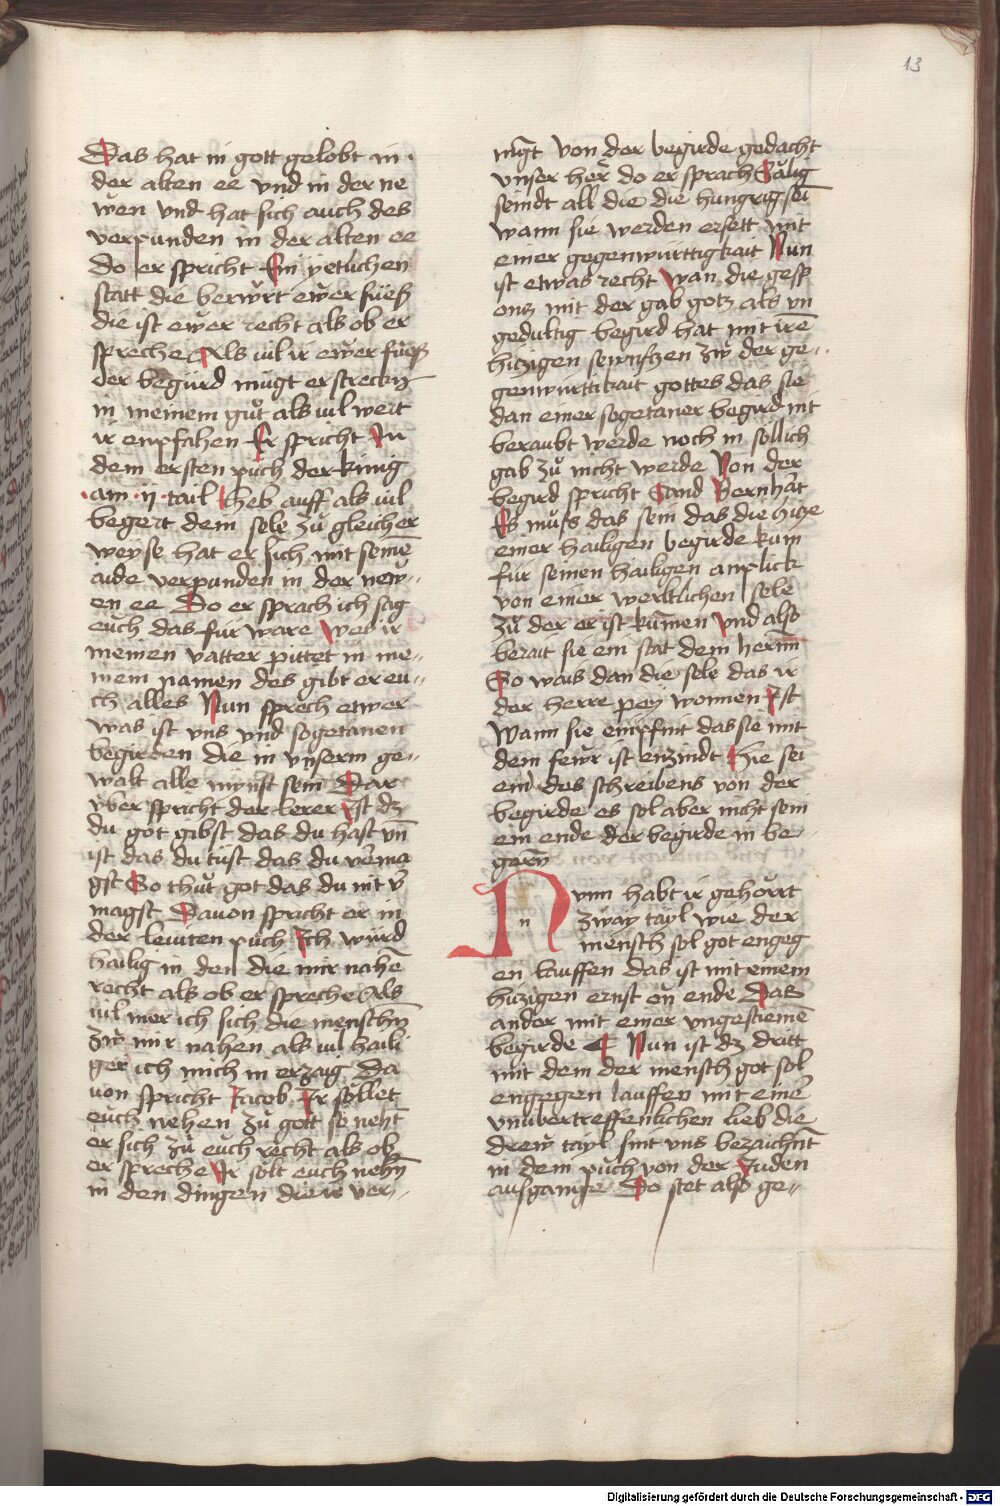 13
Das hat in gott gelobt in
der alten ee vnd in der ne
wen vnd hat sich auch des
verpunden in der alten ee
do er spricht Ein yetlichen
statt die berwrt ewer füeß
die ist ewer recht als ob er
spreche Als uil ir ewer füeß
der begürd mügt erstreckn̄
in meinem gůt als uil wert
ir enpfahen Er spricht In
dem ersten půch der künig
·am· ij· tail Heb auff als uil
begert dein sele zů gleicher
weyse hat er sich mit seinē
aide verpunden in der new-
en ee Do er sprach ich sag
euch das für ware Wes ir
meinen vatter pittet in me-
inem namen des gibt er eu-
ch alles Nun sprech etwer
was ist vns vmb sogetanen
begirden die in vnserm ge-
walt alle mynst sein Dar
vber spricht der lerer Ist dz
du got gibst das du hast vn̄
ist das du tüst das du verma
gst So thůt got das du nit v̄
magst Dauon spricht er in
der leuiten půch Ich würd
heilig in den die mir nahē
recht als ob er spreche Als
uil mer ich sich die menschn̄
zw mir nahen als uil haili
ger ich mich in erzaig Da
uon spricht Jacob Ir söllet
euch nehen zů gott so neht
er sich zů euch recht als ob
er spreche Ir solt euch nehn̄
in den dingen die ir ver-
mügt von der begirde gedacht
vnser her do er sprach Sälig
seindt all die die hungrig sei
wann sie werden ersett mit
einer gegenwürttigkait Nun
ist etwas recht wan die gesp
ons mit der gab gotz als vn
gedultig begird hat mit irē
hiczigen sewnftzen zw der ge-
genwurttikait gottes das sie
dan einer sogetaner begird nit
beraubt werde noch in söllich
gab zů nicht werde Von der
begird spricht Sand Bernhat
Es můss das sein das die hitze
einer hailigen begirde kum
für seinen hailigen anplick
von einer werltlichen sele
zů der er ist kumen vnd also
berait sie ein stat dem herrn̄
So wais dan die sele das ir
der herre pey wonnen Ist
Wann sie empfint das sie mit
dem fewr ist enzindt Hie sei
ein des schreibens von der
begirde es sol aber nicht sein
ein ende der begirde in be-
gern̄
Nvnn habt ir gehörrt
zway tayl wie der
mensch sol got engeg
en lauffen das ist mit einem
hiczigen ernst on ende Das
ander mit einer vngestiemē
begirde ¶ Nun ist dz dritt
mit dem der mensch got sol
engegen lauffen mit einer
vnubertreffenlichen lieb die
drew tayl sint vns bezaichnt
in dem půch von der Juden
ausgange Do stet also ge-
Digitalisierung gefördert durch die Deutsche Forschungsgemeinschaft - DFG